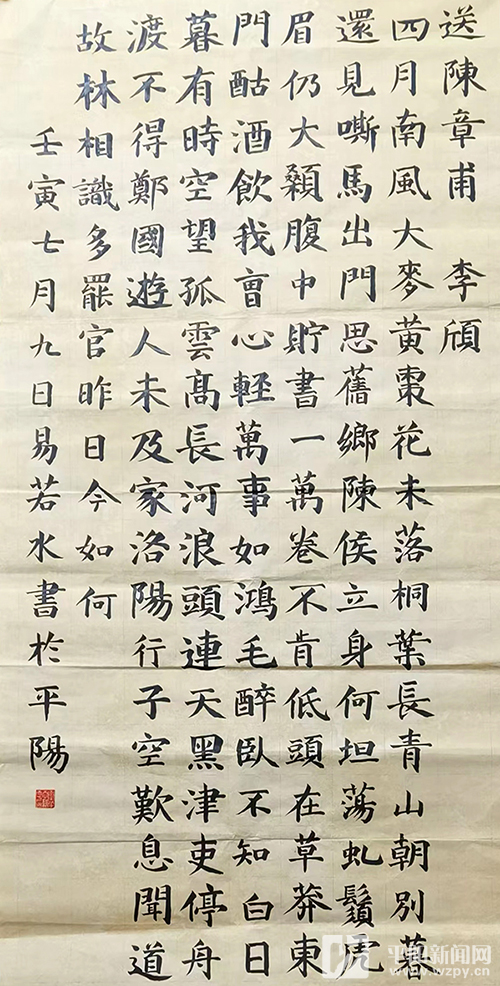 送陳章甫 李頎
四月南風大麥黃棗花未落桐葉長青山朝別暮
還見嘶馬出門思舊鄉陳侯立身何坦蕩虬鬚虎
眉仍大顙腹中貯書一萬卷不肯低頭在草莽東
門酤酒飲我曹心輕萬事如鴻毛醉臥不知白日
暮有時空望孤雲髙長河浪頭連天黑津吏停舟
渡不得鄭國遊人未及家洛陽行子空歎息聞道
故林相識多罷官昨日今如何
壬寅七月九日易若水書於平陽
平阳新闻网
www.wzpy.cn